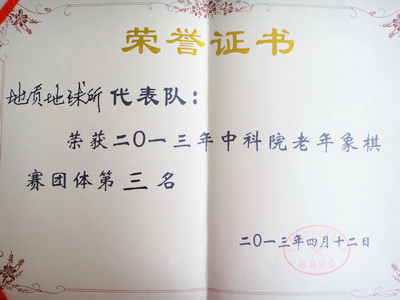 荣誉证书
地质地球所代表队：
荣获二〇一三年中科院老年象棋
赛团体第三名
二〇一三年四月十二日